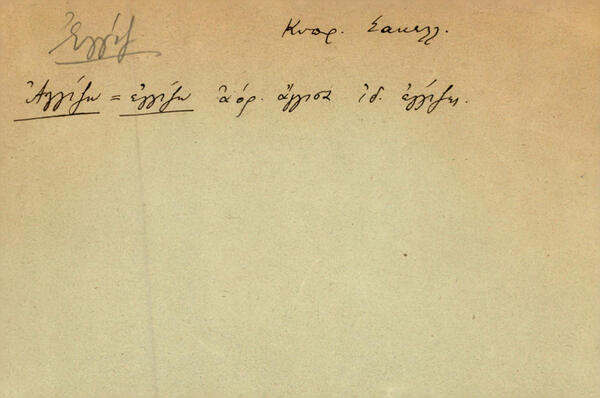 Ἐγγίζ
Κυπρ. Σακελλ.
Ἀγγίζω = ἐγγίζω ἀόρ. ἄγγισα ἰδ. ἐγγίζω.